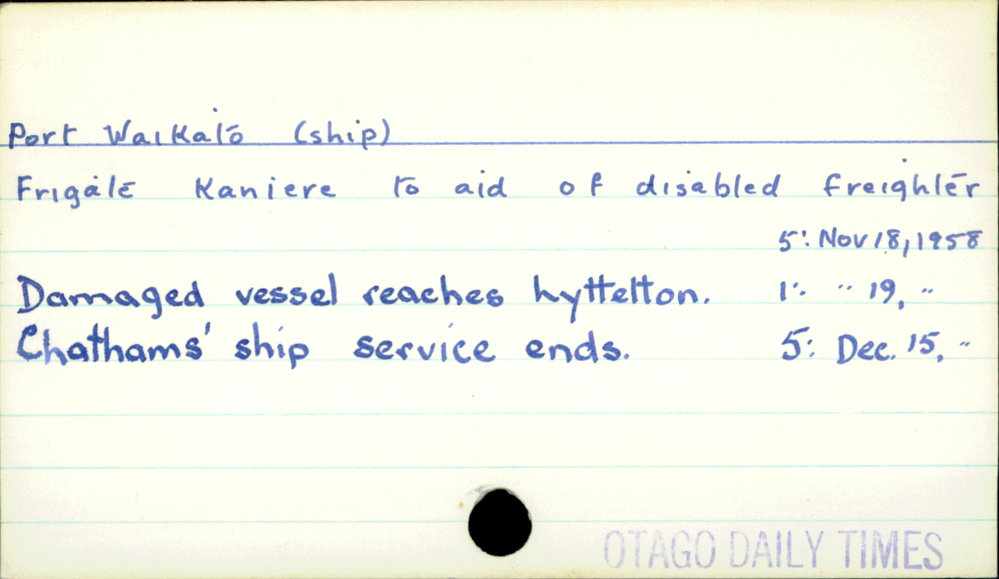 Port Waikato (ship)
Frigate Kaniere to aid of disabled freighter
5: Nov 18, 1958
Damaged vessel reaches Lyttelton. 1: " 19, "
Chathams' ship service ends. 5: Dec. 15, "
OTAGO DAILY TIMES